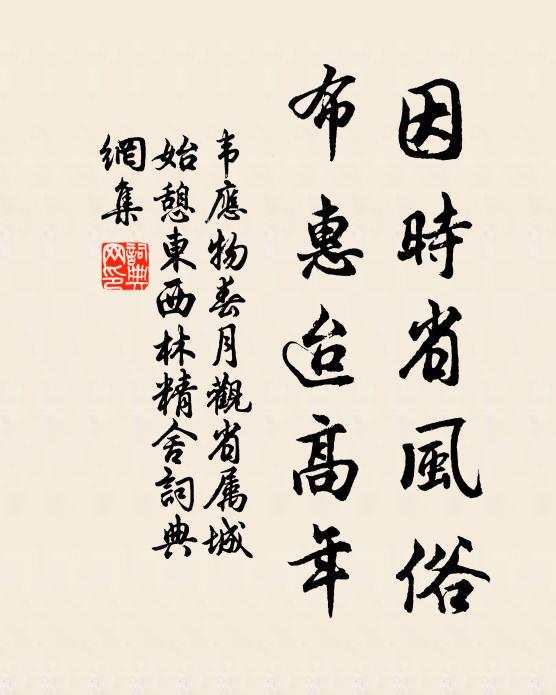 因時省風俗
布惠迨高年
韦應物春月觀省属城
始憩東西林精舍詞典
網集
詞典網印